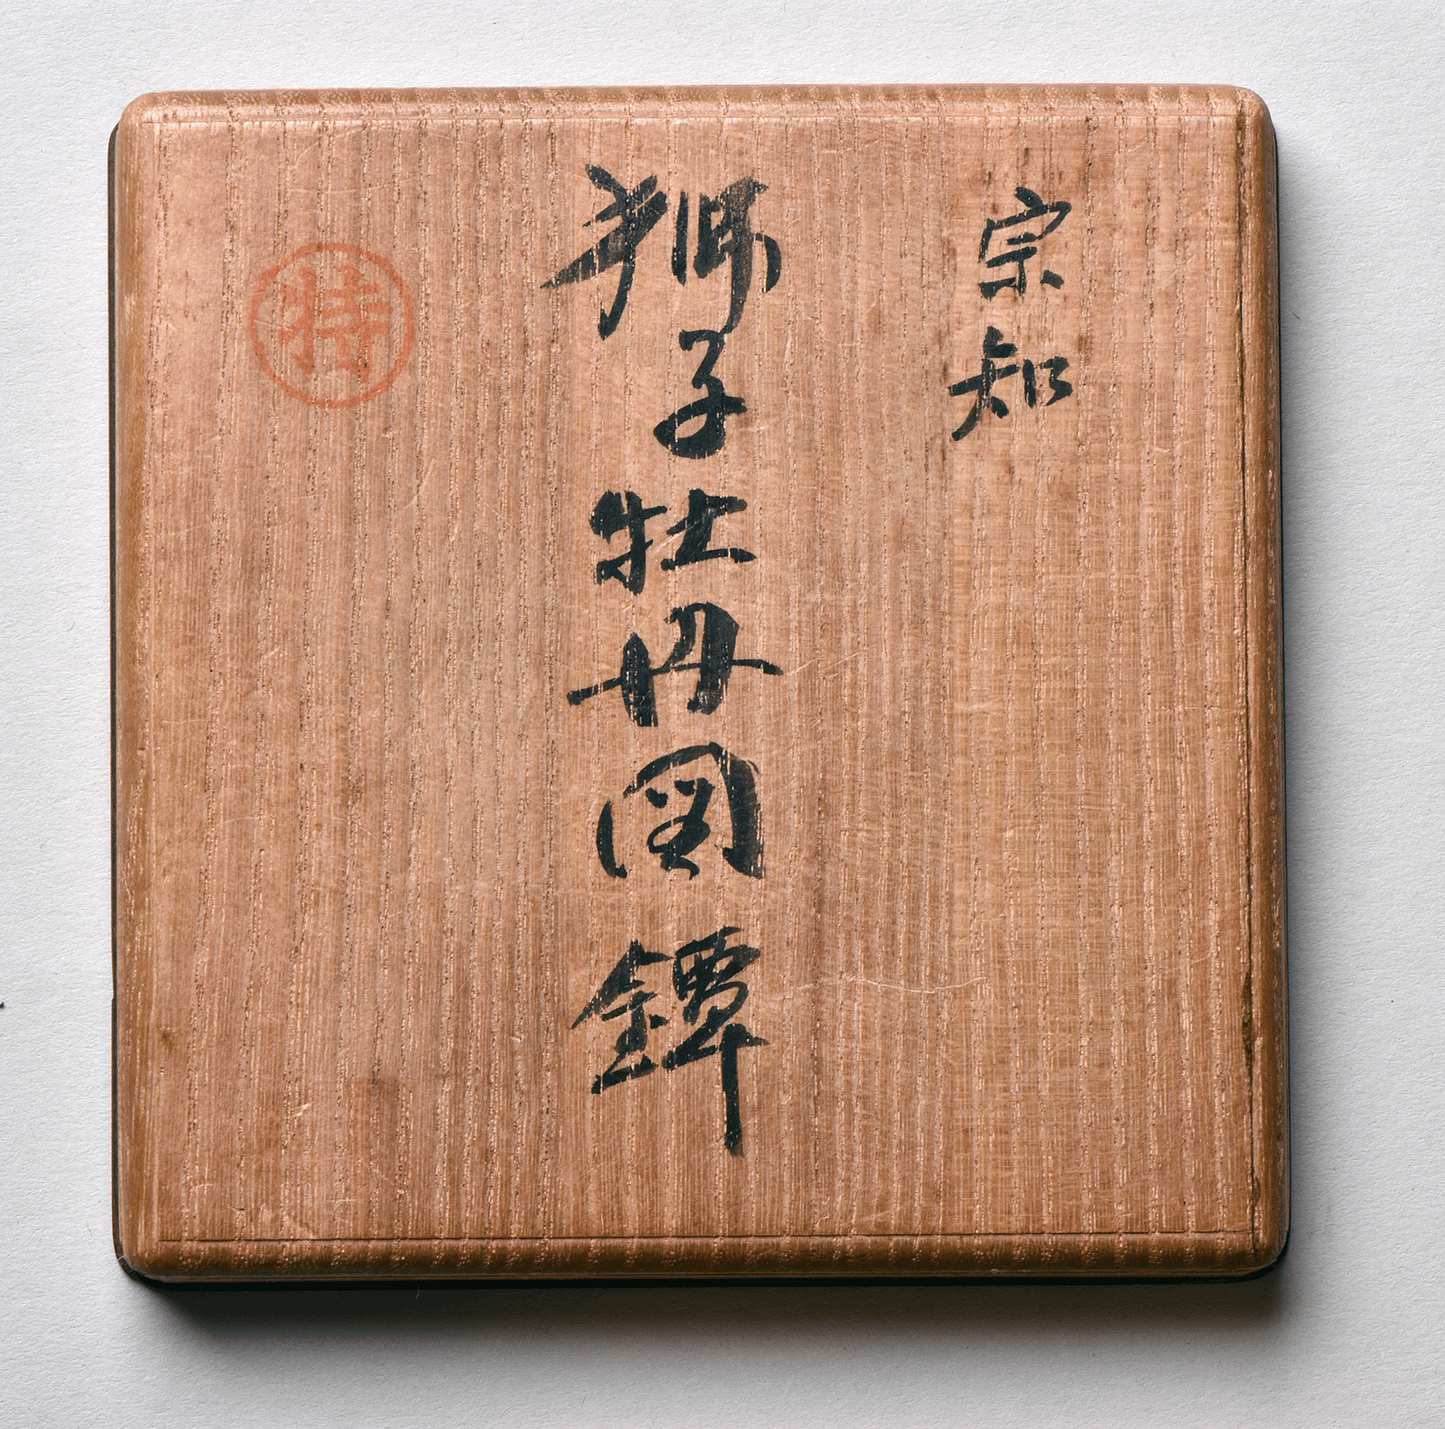 宗知
獅子牡丹図鐔
特